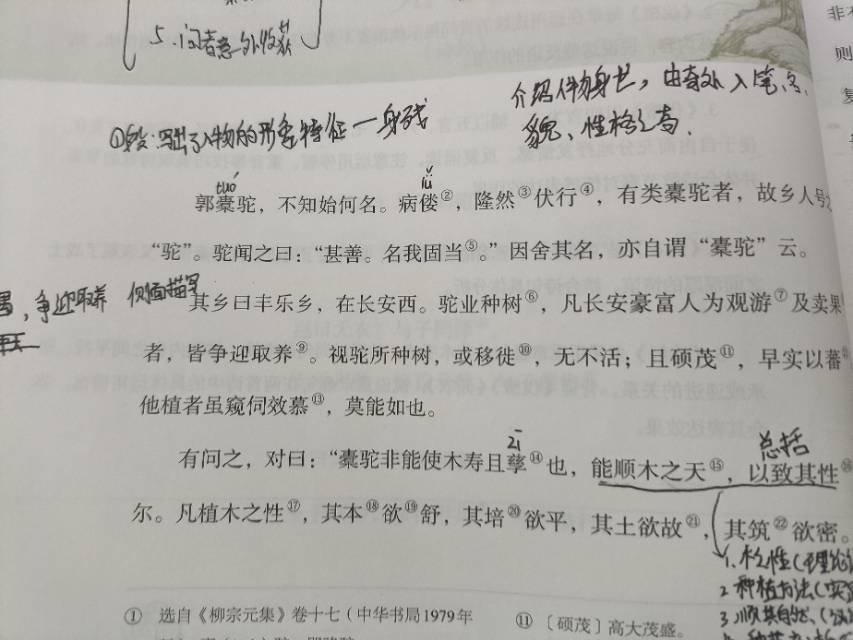 5.问者意外收获
介绍人物身世，由奇处入笔，名、
①段：写出了人物的形象特征一身残
貌、性格之高.
tuó
lǚ
郭橐驼，不知始何名。病偻②，隆然③伏行④，有类橐驼者，故乡人号之
“驼”。驼闻之曰：“甚善。名我固当⑤。”因舍其名，亦自谓“橐驼”云。
争迎取养 侧面描写
其乡曰丰乐乡，在长安西。驼业种树⑥，凡长安豪富人为观游⑦及卖果
者，皆争迎取养⑨。视驼所种树，或移徙⑩，无不活；且硕茂⑪，早实以蕃
他植者虽窥伺效慕⑬，莫能如也。
zī
总括
有问之，对曰：“橐驼非能使木寿且孳⑭也，能顺木之天⑮，以致其性⑯
尔。凡植木之性⑰，其本⑱欲⑲舒，其培⑳欲平，其土欲故㉑，其筑㉒欲密。
2 种植方法
3 顺其自然
① 选自《柳宗元集》卷十七（中华书局1979年
⑪〔硕茂〕高大茂盛。
非
则
复